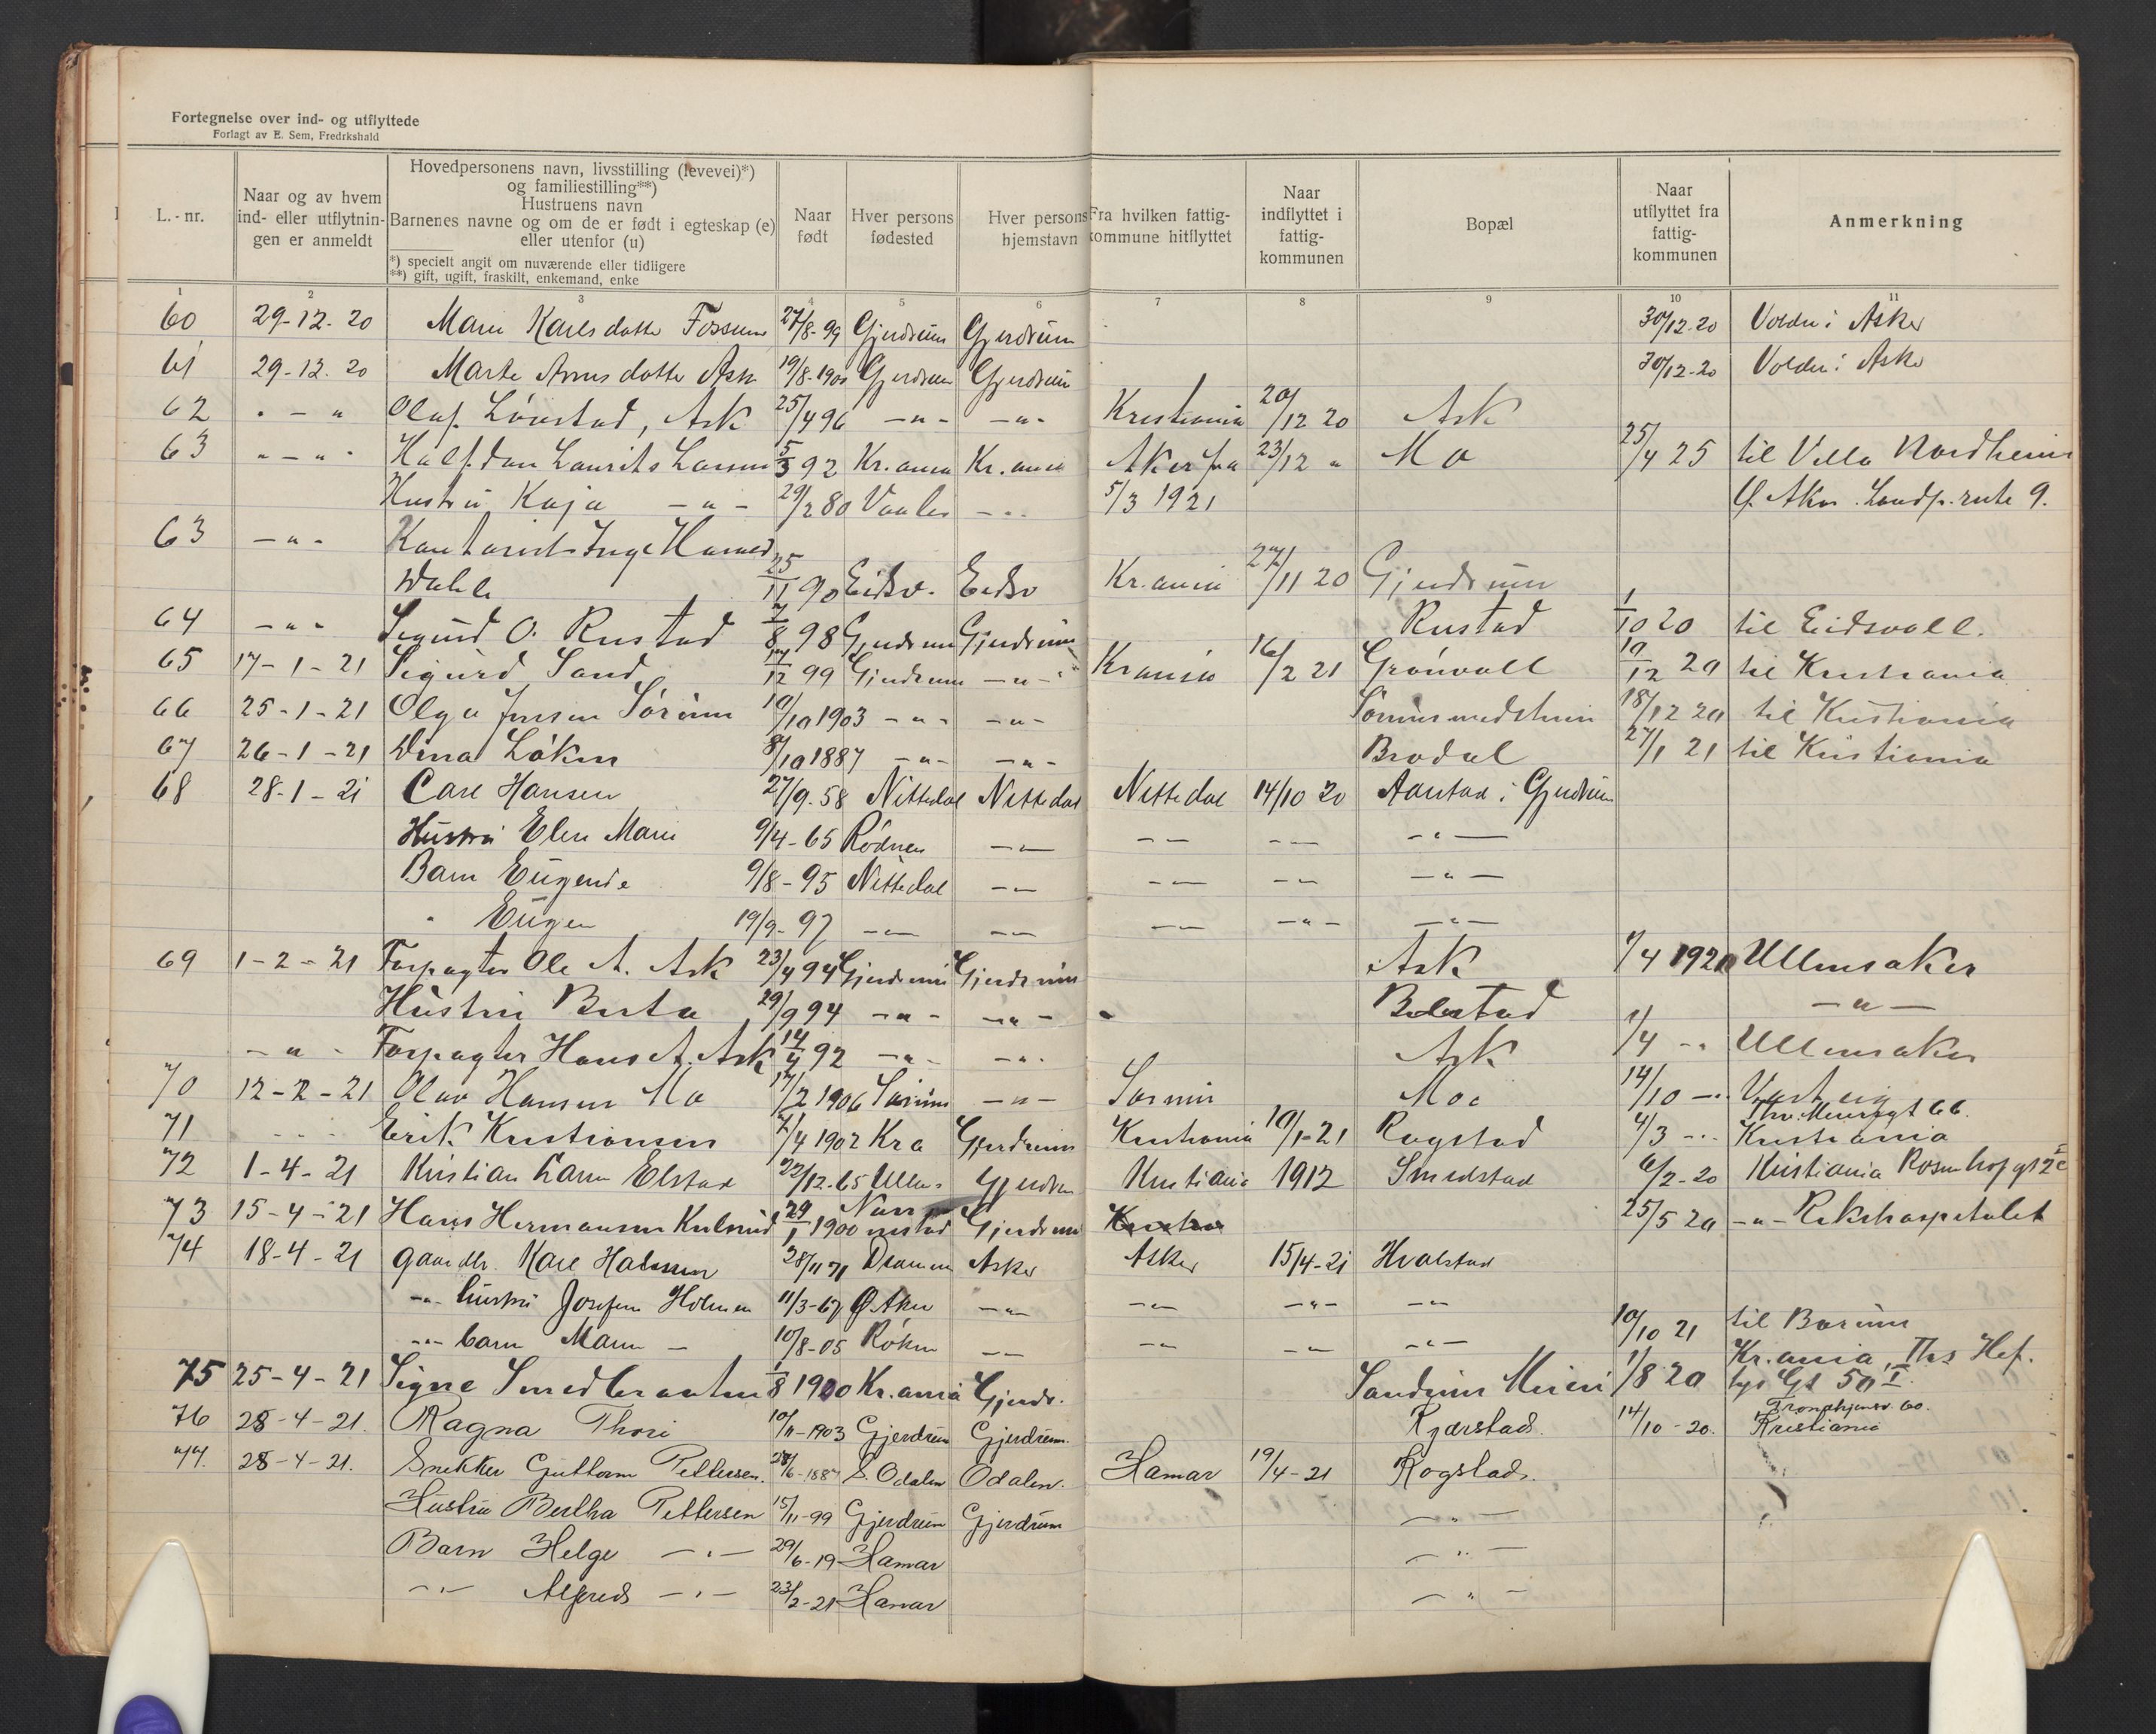 Fortegnelse over ind- og utflyttede
Forlagt av E. Sem, Fredrkshald
L.-nr. Naar og av hvem ind- eller utflytnin- gen er anmeldt Hovedpersonens navn, livsstilling (levevei)*) og familiestilling**) Hustruens navn Barnenes navne og om de er født i egteskap (e) eller utenfor (u) *) specielt angit om nuværende eller tidligere **) gift, ugift, fraskilt, enkemand, enke Naar født Hver persons fødested Hver persons hjemstavn Fra hvilken fattig- kommune hitflyttet Naar indflyttet i fattig- kommunen Bopæl Naar utflyttet fra fattig- kommunen Anmerkning
1 2 3 4 5 6 7 8 9 10 11
60 29-12-20 Marie Karlsdatter Fossum 27/8-99 Gjerdrum Gjerdrum 30/12-20 Volden i Asker
61 29-12-20 Marte Arnesdatter Ask 19/8-1900 Gjerdrum Gjerdrum 30/12-20 Volden i Asker
62 " - " Olaf Lönstad, Ask 25/4 96 -"- -"- Kristiania 20/12 20 Ask
63 " - " - Halfdan Laurits Larsen 5/3 92 Kr.ania Kr.ania Aker fra 23/12 " Mo 25/4 25 til Villa Nordheim
Hustru Kaja -"- 29/2 80 Vaaler -"- 5/3 1921 Ø. Aker Landp.rute 9.
63 -"- Kontorist Inge Harald
Dahle 25/11 90 Eidsv. Eidsv Kr.ania 27/11 20 Gjerdrum
64 -"- Sigurd O. Rustad 7/8 98 Gjerdrum Gjerdrum Rustad 1/10 20 til Eidsvoll.
65 17-1-21 Sigurd Sand 17/12 99 Gjerdrum -"- Kr.ania 16/2 21 Grönvoll 10/12 20 til Kristiania
66 25-1-21 Olga Jensen Sörum 10/10 1903 -"- -"- 18/12 20 til Kristiania
67 26-1-21 Dina Löken 8/10 1887 -"- -"- Brodal 27/1 21 til Kristiania
68 28-1-21 Carl Hansen 27/9-58 Nittedal Nittedal Nittedal 14/10 20 Aamtad i Gjerdrum
Hustru Elen Marie 9/4-65 Rödnes -"- -"- -"- -"-
Barn Eugenie 9/8-95 Nittedal -"- -"- -"- -"-
" Eugen 19/9-97 -"- -"- -"- -"- -"-
69 1-2-21 Forpagter Ole A. Ask 23/4 94 Gjerdrum Gjerdrum Ask 1/4 1920 Ullensaker
Hustru Berta 29/9 94 -"- -"- -"-
-"- Forpagter Hans A. Ask 14/4 92 -"- -"- Ask 1/4 -"- Ullensaker
70 12-2-21 Olav Hansen Mo 17/2 1906 Sörum -"- Sörum Moe 14/10 -"-
71 " - " Erik Kristiansen 7/4 1902 Kra Gjerdrum Kristiania 10/1-21 Rogstad 4/3 -"- Thv. Meyersgt 66. Kristiania
72 1-4-21 Kristian Larsen Elstad 22/12-65 Ullens Gjerdrum Kristiania 1912 Smedstad 6/2-20 Kristiania Rosenhofgt 2c
73 15-4-21 Hans Hermansen Kulsrud 29/1 1900 Nannestad Gjerdrum Kristia 25/5 20 -"- Rikshospitalet
74 18-4-21 Gaardbr. Karl Halvorsen 28/11 71 Dramm Asker Asker 15/4-21 Hvalstad
-"- hustru Josefine Holmen 11/3-67 Ø. Aker -"- -"- -"- -"-
-"- barn Marie - 10/8-05 Röken -"- -"- -"- -"- 10/10 21 til Bærum
75 25-4-21 Signe Smedbraaten 1/8 1900 Kr.ania Gjerdr. 1/8 20 Kr.ania, Ths Hef-
tys Gt 50 I.
76 28-4-21. Ragna Thori 10/11-1903 Gjerdrum Gjerdrum. Kjærstad. 14/10-20. Trondhjemsv. 60. Kristiania
77. 28-4-21. Snekker Guttorm Pettersen. 28/6-1887 S. Odalen Odalen. Hamar 19/4-21 Rogstad.
Hustru Bertha Pettersen 15/11-99 Gjerdrum Gjerdrum -"-
Barn Helge -"- 29/6-19 Hamar -"-
-"- Alfred -"- 23/2-21 Hamar -"-